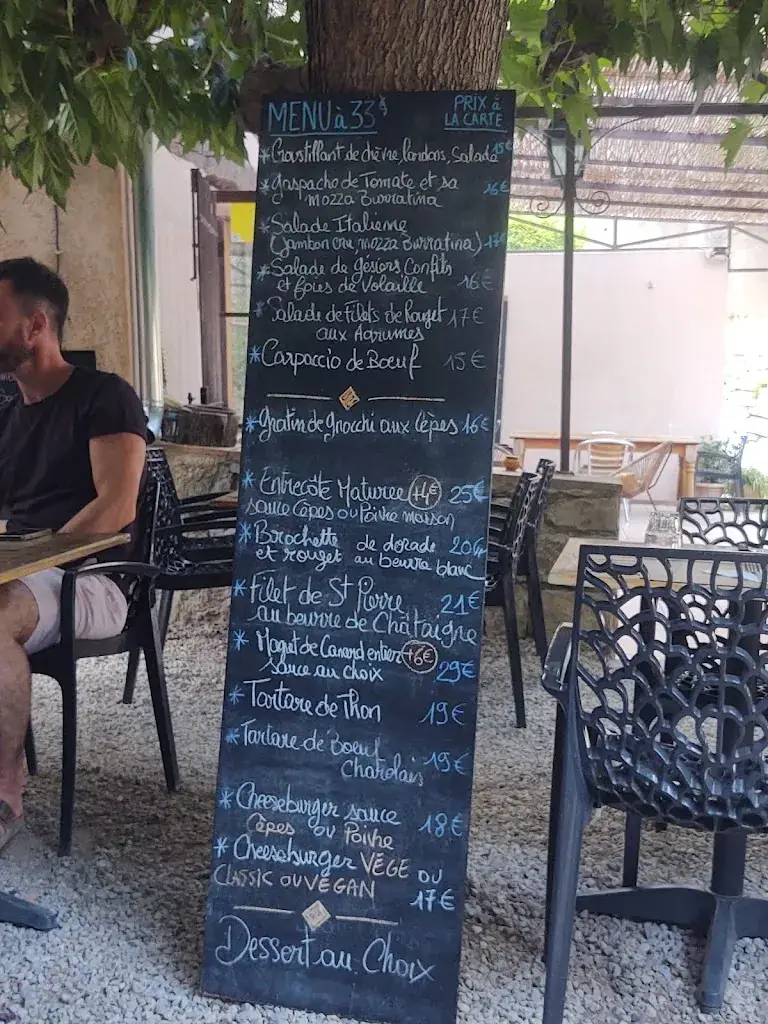 MENU à 33€
PRIX à
LA CARTE
* Croustillant de chèvre, lardons, Salade 15€
* Gaspacho de Tomate et sa 16€
mozza Burratina
* Salade Italienne
(jambon cru, mozza Burratina) 17€
* Salade de gésiers Confits
et foies de Volaille 16€
* Salade de Filets de Rouget 17€
aux Agrumes
* Carpaccio de Boeuf 15€
* Gratin de gnocchi aux Cèpes 16€
* Entrecôte Maturée (+4€) 25€
sauce Cèpes ou Poivre maison
* Brochette de dorade 20€
et rouget au beurre blanc
* Filet de St Pierre 21€
au beurre de Châtaigne
* Magret de Canard entier (+6€)
sauce au choix 29€
* Tartare de Thon 19€
* Tartare de Boeuf 19€
Charolais
* Cheeseburger sauce 18€
Cèpes ou Poivre
* Cheeseburger VÉGÉ ou
CLASSIC OU VEGAN 17€
Dessert au Choix